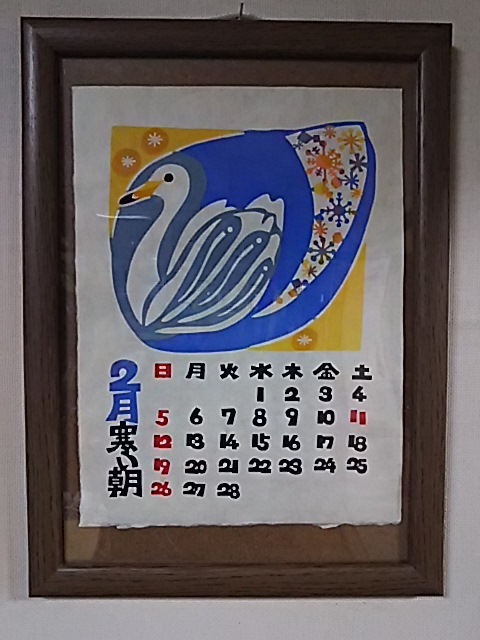 2月寒い朝
日 月 火 水 木 金 土
1 2 3 4
5 6 7 8 9 10 11
12 13 14 15 16 17 18
19 20 21 22 23 24 25
26 27 28